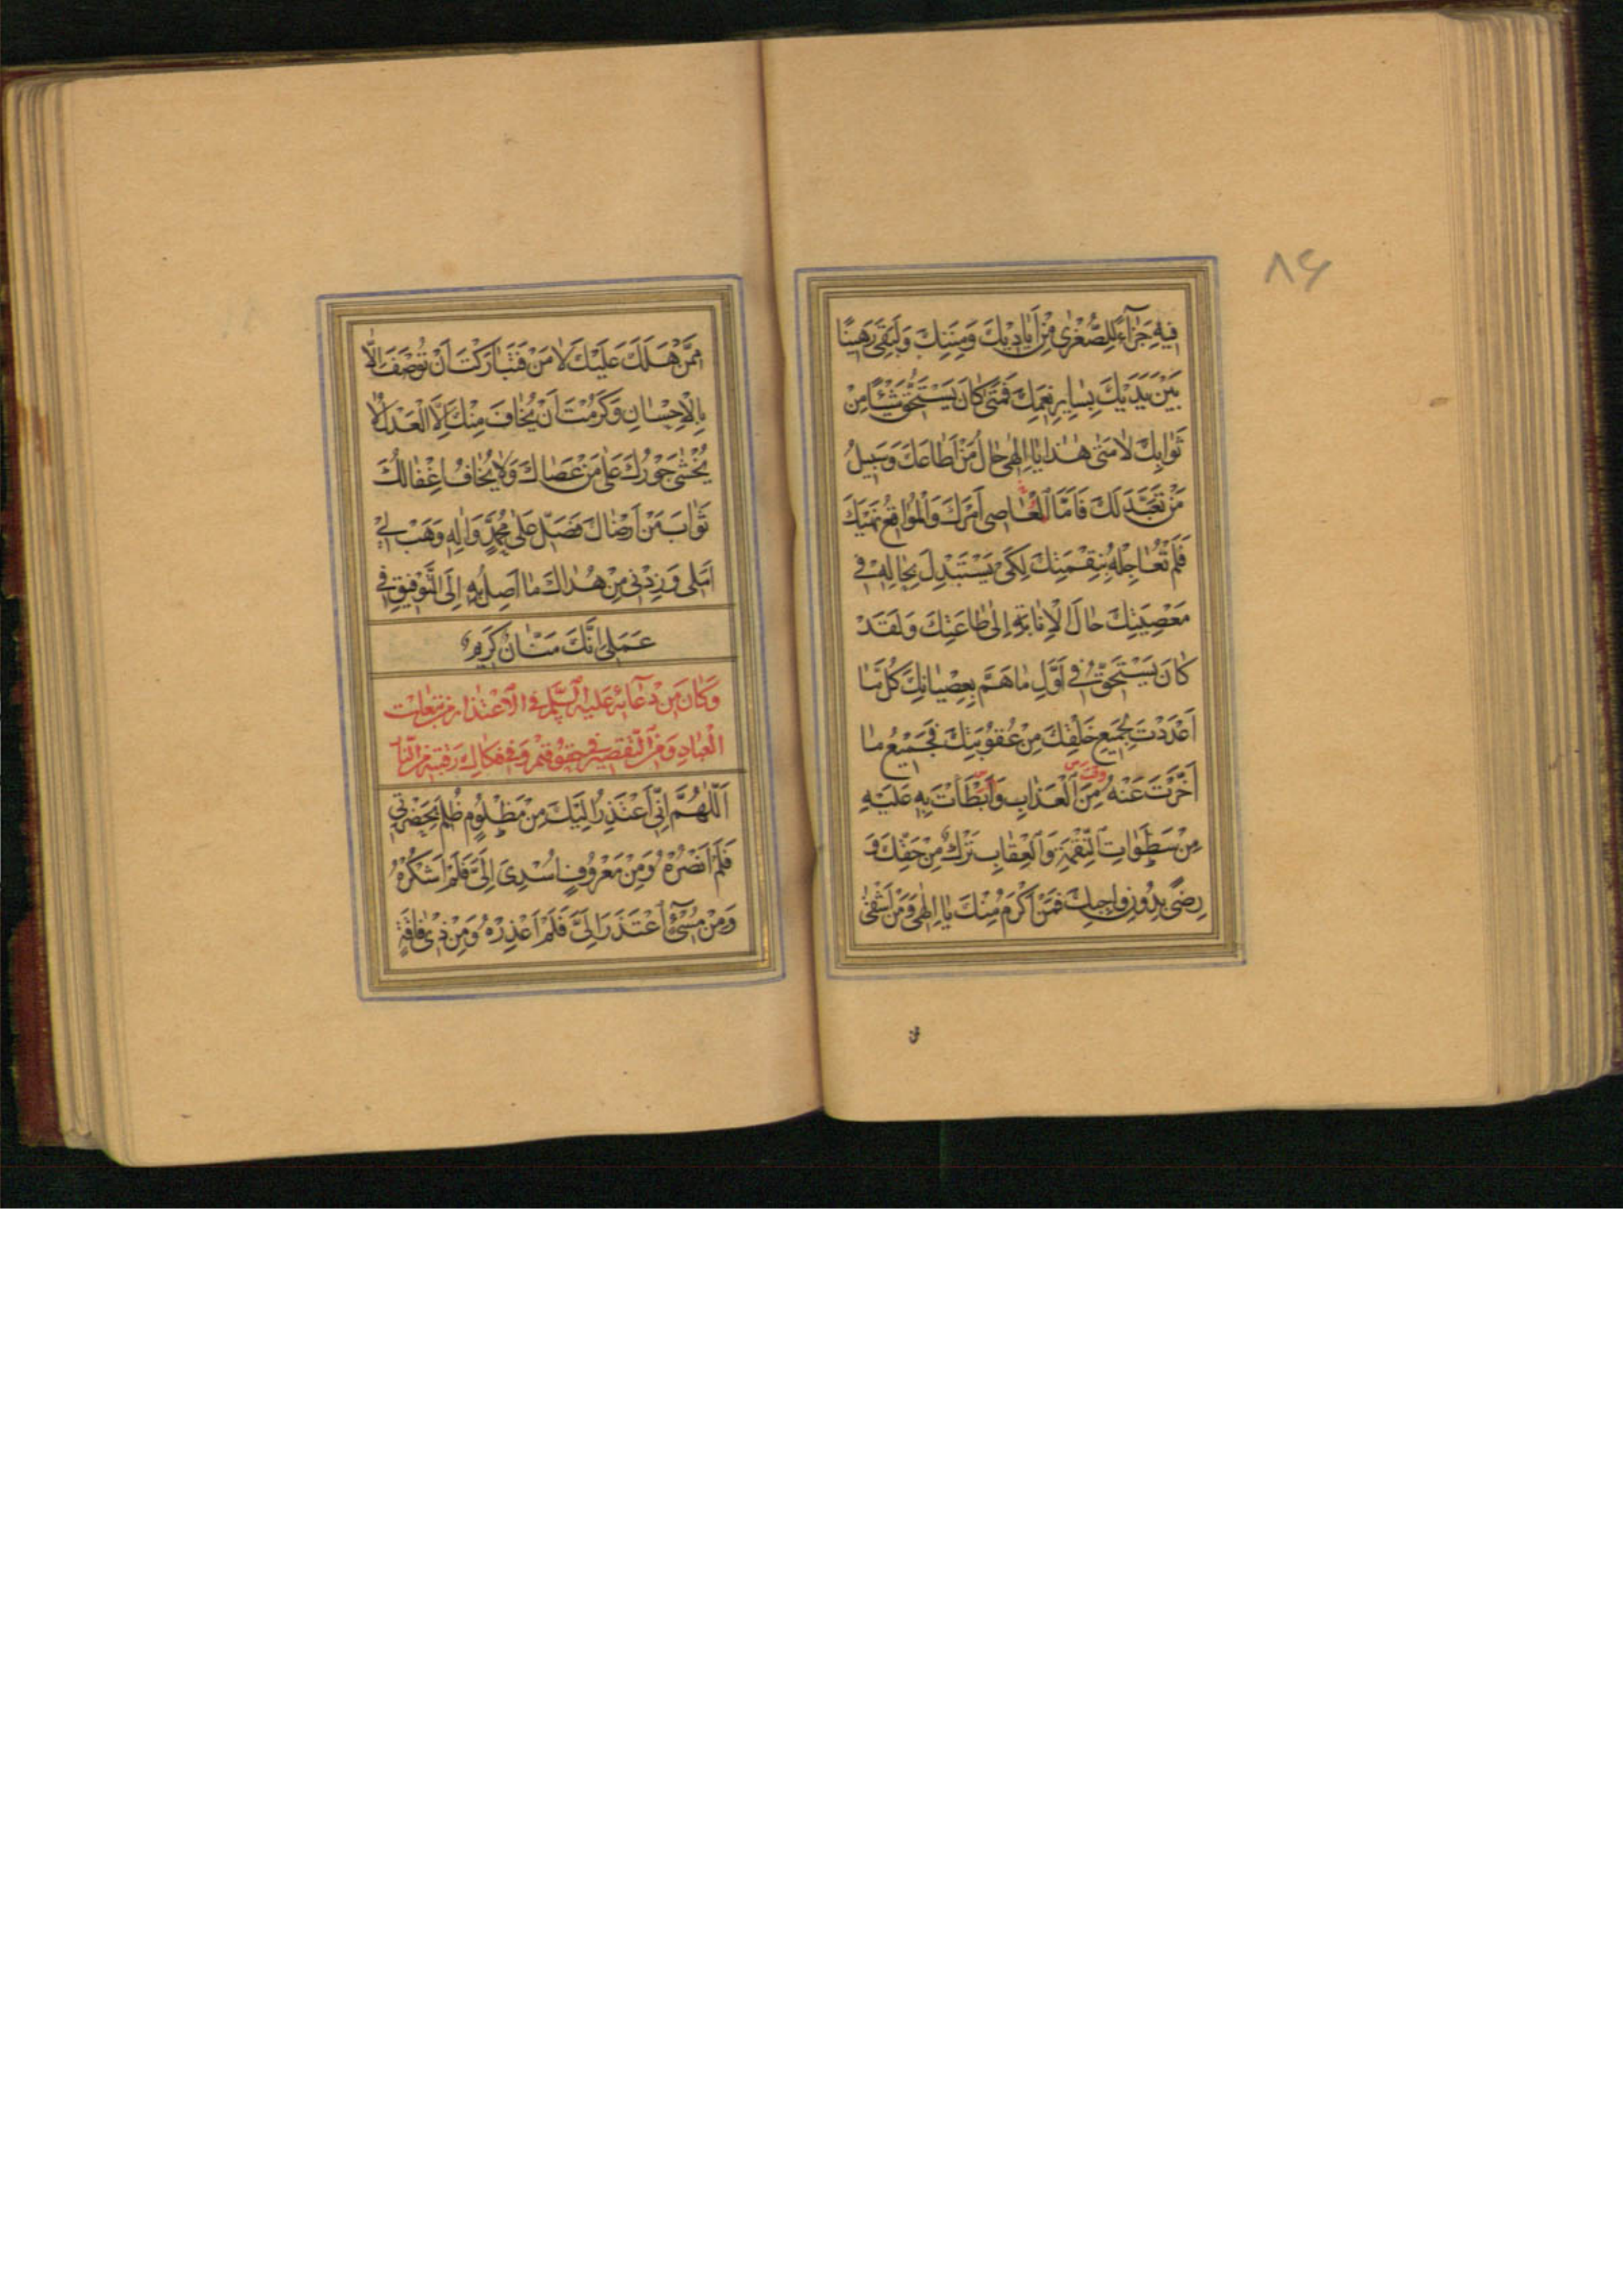 ۸۶
فِيهِ جَزَآءً لِلصُّغْرٰى مِنْ اَيَادِيْكَ وَمِنَنِكَ وَلَبَقِىَ رَهِينًا
بَيْنَ يَدَيْكَ بِسَايِرِ نِعَمِكَ فَمَتٰى كَانَ يَسْتَحِقُّ شَيْئًا مِنْ
ثَوَابِكَ لَا مَتٰى هٰذَا يَا اِلٰهِى حَالُ مَنْ اَطَاعَكَ وَسَبِيلُ
مَنْ تَعَبَّدَ لَكَ فَاَمَّا الْعَاصِى اَمْرَكَ وَالْمُوَاقِعُ نَهْيَكَ
فَلَمْ تُعَاجِلْهُ بِنِقْمَتِكَ لِكَىْ يَسْتَبْدِلَ بِحَالِهِ فِى
مَعْصِيَتِكَ حَالَ الْاِنَابَةِ اِلٰى طَاعَتِكَ وَلَقَدْ
كَانَ يَسْتَحِقُّ فِى اَوَّلِ مَا هَمَّ بِعِصْيَانِكَ كُلَّ مَا
اَعْدَدْتَ لِجَمِيعِ خَلْقِكَ مِنْ عُقُوبَتِكَ فَجَمِيْعُ مَا
اَخَّرْتَ عَنْهُ مِنَ الْعَذَابِ وَاَبْطَأْتَ بِهِ عَلَيْهِ
مِنْ سَطَوَاتِ النِّقْمَةِ وَالْعِقَابِ تَرْكٌ مِنْ حَقِّكَ وَ
رِضًى بِدُونِ وَاجِبِكَ فَمَنْ اَكْرَمُ مِنْكَ يَا اِلٰهِى وَمَنْ اَشْقٰى
مِمَّنْ هَلَكَ عَلَيْكَ لَا مَنْ فَتَبَارَكْتَ اَنْ تُوصَفَ اِلَّا
بِالْاِحْسَانِ وَكَرُمْتَ اَنْ يُخَافَ مِنْكَ اِلَّا الْعَدْلُ لَا
يُخْشٰى جَوْرُكَ عَلٰى مَنْ عَصَاكَ وَلَا يُخَافُ اِغْفَالُكَ
ثَوَابَ مَنْ اَرْضَاكَ فَصَلِّ عَلٰى مُحَمَّدٍ وَاٰلِهِ وَهَبْ لِى
اَمَلِى وَزِدْنِى مِنْ هُدَاكَ مَا اَصِلُ بِهِ اِلَى التَّوْفِيقِ فِى
عَمَلِى اِنَّكَ مَنَّانٌ كَرِيمٌ
وَكَانَ مِنْ دُعَآئِهِ عَلَيْهِ السَّلَمُ فِى الْاِعْتِذَارِ مِنْ تَبِعَاتِ
الْعِبَادِ وَمِنَ التَّقْصِيرِ فِى حُقُوقِهِمْ وَفِى فَكَاكِ رَقَبَتِهِ مِنَ النَّارِ
اَللّٰهُمَّ اِنِّى اَعْتَذِرُ اِلَيْكَ مِنْ مَظْلُومٍ ظُلِمَ بِحَضْرَتِى
فَلَمْ اَنْصُرْهُ وَمِنْ مَعْرُوفٍ اُسْدِىَ اِلَىَّ فَلَمْ اَشْكُرْهُ
وَمِنْ مُسِىْءٍ اعْتَذَرَ اِلَىَّ فَلَمْ اَعْذِرْهُ وَمِنْ ذِى فَاقَةٍ